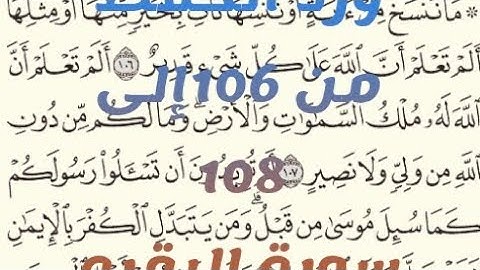 * مَا نَنسَخْ مِنْ ءَايَةٍ أَوْ نُنسِهَا نَأْتِ بِخَيْرٍ مِّنْهَا أَوْ مِثْلِهَا
أَلَمْ تَعْلَمْ أَنَّ ٱللَّهَ عَلَىٰ كُلِّ شَىْءٍ قَدِيرٌ ١٠٦ أَلَمْ تَعْلَمْ أَنَّ
من 106 إلى
ٱللَّهَ لَهُۥ مُلْكُ ٱلسَّمَٰوَٰتِ وَٱلْأَرْضِ ۗ وَمَا لَكُم مِّن دُونِ
108
ٱللَّهِ مِن وَلِىٍّ وَلَا نَصِيرٍ ١٠٧ أَمْ تُرِيدُونَ أَن تَسْـَٔلُوا۟ رَسُولَكُمْ
كَمَا سُئِلَ مُوسَىٰ مِن قَبْلُ ۗ وَمَن يَتَبَدَّلِ ٱلْكُفْرَ بِٱلْإِيمَٰنِ
سورة البقره